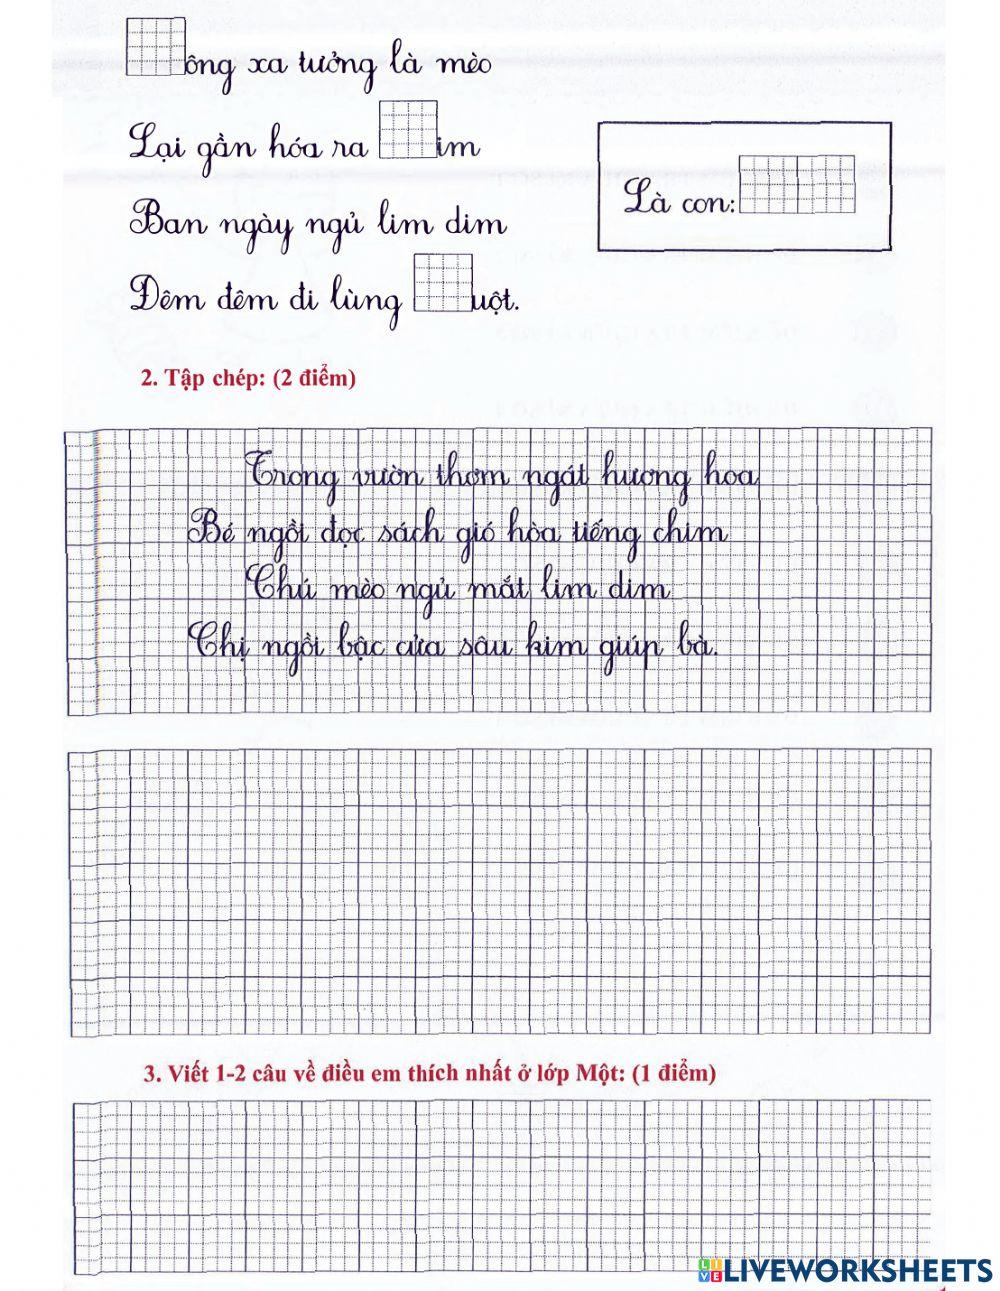 ông xa tưởng là mèo
Lại gần hóa ra im
Là con:
Ban ngày ngủ lim dim
Đêm đêm đi lùng uột.
2. Tập chép: (2 điểm)
Trong vườn thơm ngát hương hoa
Bé ngồi đọc sách gió hòa tiếng chim
Chú mèo ngủ mắt lim dim
Chị ngồi bậc cửa sâu kim giúp bà.
3. Viết 1-2 câu về điều em thích nhất ở lớp Một: (1 điểm)
LIVE LIVEWORKSHEETS